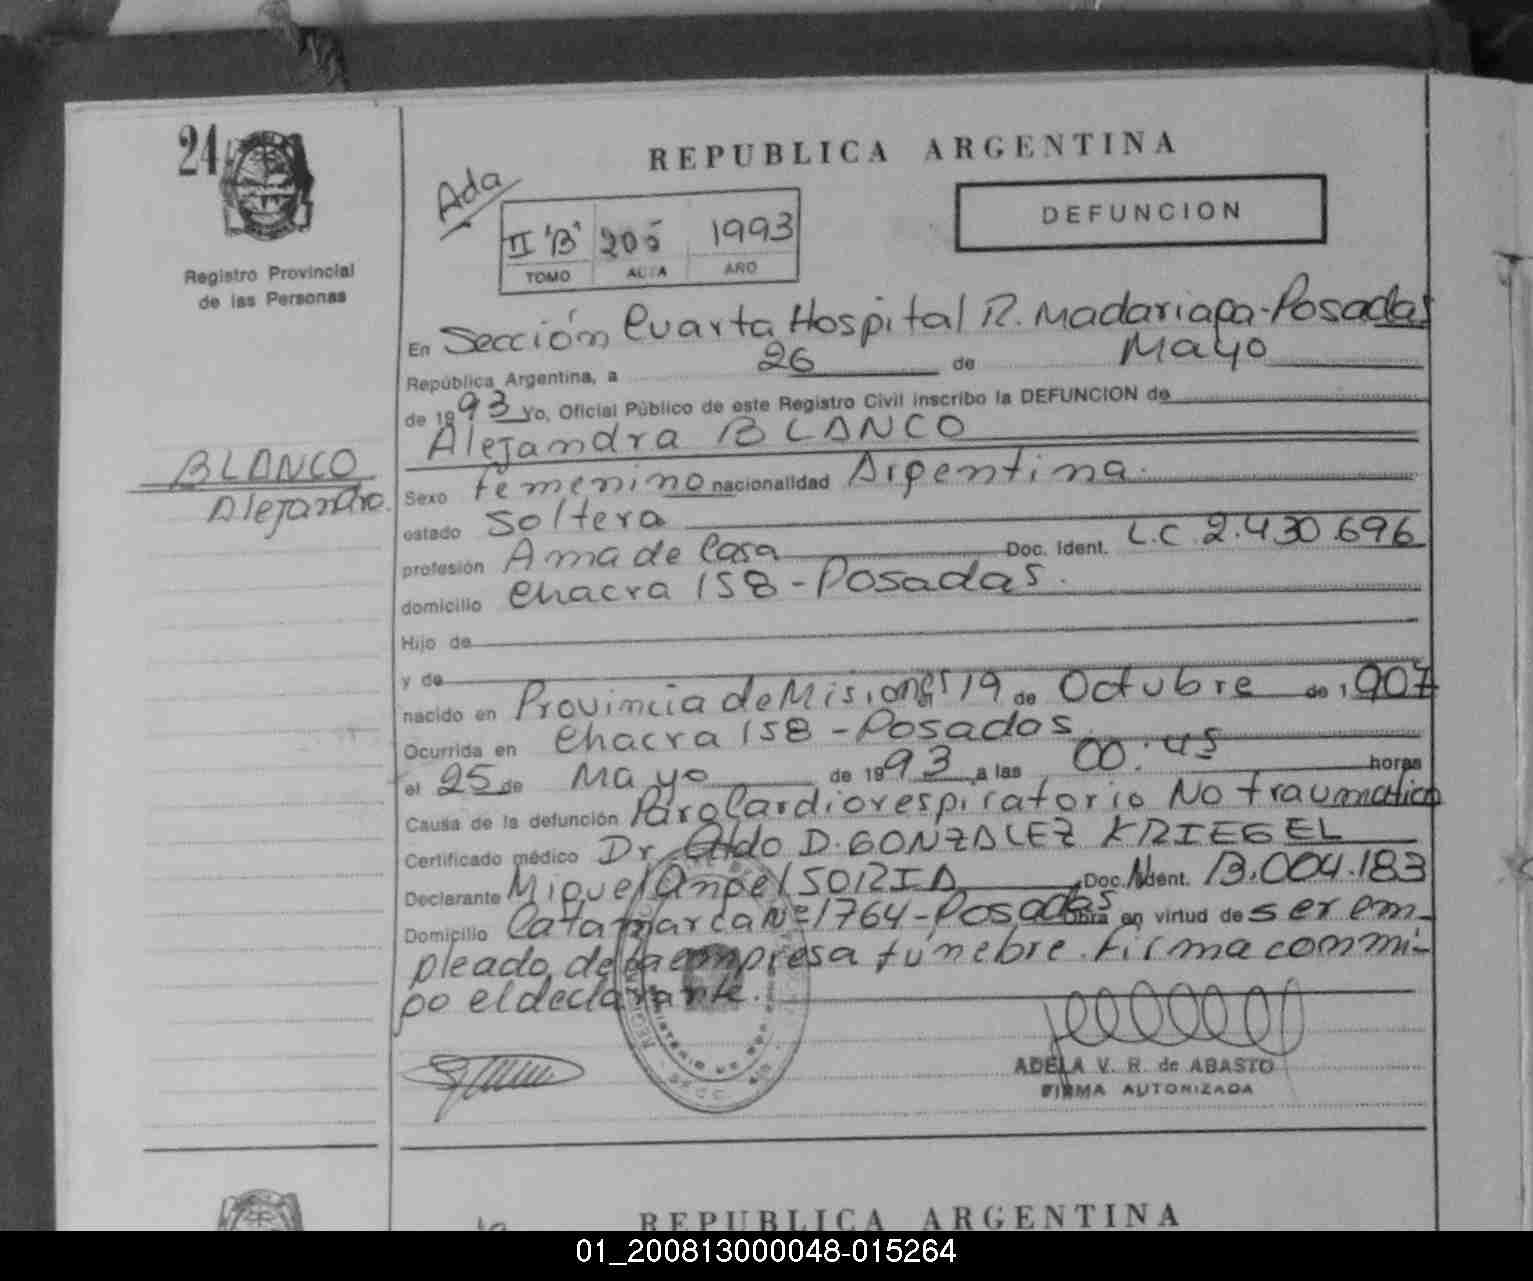 24
Registro Provincial
de las Personas
REPUBLICA ARGENTINA
Ada
DEFUNCION
II "B" 205 1993
TOMO ACTA AÑO
En Sección Cuarta Hospital R. Madariaga-Posadas
República Argentina, a 26 de Mayo
de 1993 Yo, Oficial Público de este Registro Civil inscribo la DEFUNCION de
Alejandra BLANCO
BLANCO
Alejandra.
Sexo femenino nacionalidad Argentina.
estado soltera
profesión Ama de Casa Doc. Ident. L.C. 2.430.696
domicilio Chacra 158-Posadas.
Hijo de
y de
nacido en Provincia de Misiones 19 de Octubre de 1907
Ocurrida en Chacra 158-Posadas.
el 25 de Mayo de 1993 a las 00:45 horas
Causa de la defunción Paro Cardiorespiratorio No traumatico
Certificado médico Dr Aldo D. GONZALEZ KRIEGEL
Declarante Miguel Angel SORIA Doc. Ident. 13.004.183
Domicilio Catamarca Nº 1764-Posadas Obra en virtud de ser em-
pleado de la empresa fúnebre. Firma conmi-
go el declarante.
ADELA V. R. de ABASTO
FIRMA AUTORIZADA
REPUBLICA ARGENTINA
01_200813000048-015264